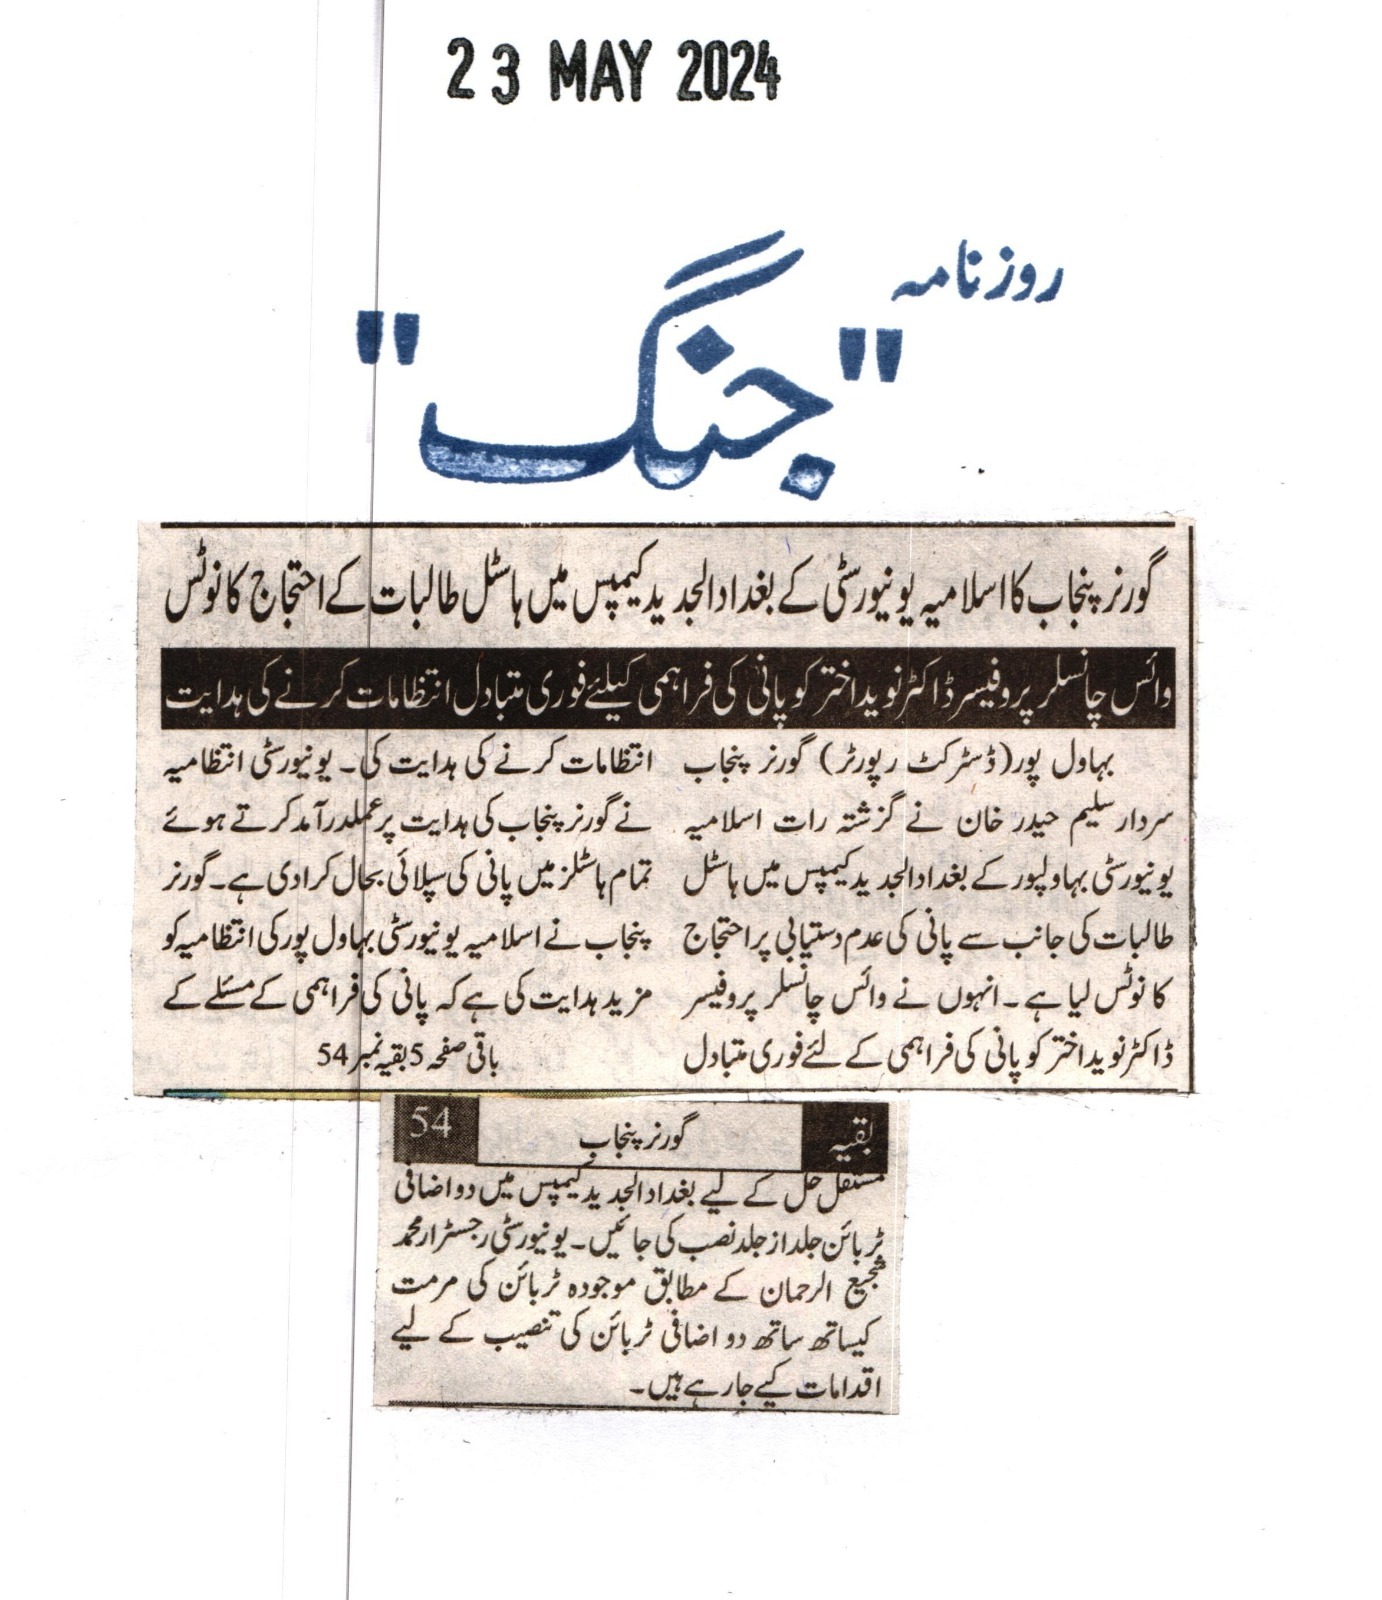 23 MAY 2024
روزنامہ
"جنگ"
گورنر پنجاب کا اسلامیہ یونیورسٹی کے بغداد الجدید کیمپس میں ہاسٹل طالبات کے احتجاج کا نوٹس
وائس چانسلر پروفیسر ڈاکٹر نوید اختر کو پانی کی فراہمی کیلئے فوری متبادل انتظامات کرنے کی ہدایت
بہاول پور (ڈسٹرکٹ رپورٹر) گورنر پنجاب
سردار سلیم حیدر خان نے گزشتہ رات اسلامیہ
یونیورسٹی بہاولپور کے بغداد الجدید کیمپس میں ہاسٹل
طالبات کی جانب سے پانی کی عدم دستیابی پر احتجاج
کا نوٹس لیا ہے۔ انہوں نے وائس چانسلر پروفیسر
ڈاکٹر نوید اختر کو پانی کی فراہمی کے لئے فوری متبادل
انتظامات کرنے کی ہدایت کی۔ یونیورسٹی انتظامیہ
نے گورنر پنجاب کی ہدایت پر عملدرآمد کرتے ہوئے
تمام ہاسٹلز میں پانی کی سپلائی بحال کرا دی ہے۔ گورنر
پنجاب نے اسلامیہ یونیورسٹی بہاول پور کی انتظامیہ کو
مزید ہدایت کی ہے کہ پانی کی فراہمی کے مسئلے کے
باقی صفحہ 5 بقیہ نمبر 54
بقیہ گورنر پنجاب 54
مستقل حل کے لیے بغداد الجدید کیمپس میں دو اضافی
ٹربائن جلد از جلد نصب کی جائیں۔ یونیورسٹی رجسٹرار محمد
شجیع الرحمان کے مطابق موجودہ ٹربائن کی مرمت
کیساتھ ساتھ دو اضافی ٹربائن کی تنصیب کے لیے
اقدامات کیے جا رہے ہیں۔